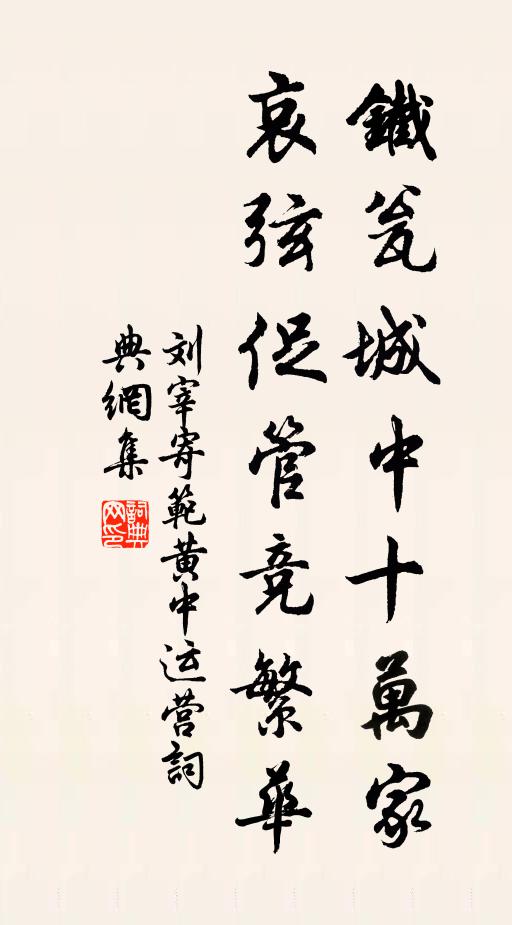 鐵瓮城中十萬家
哀弦促管竞繁華
刘宰寄範黄中运营詞
典網集
詞典网印